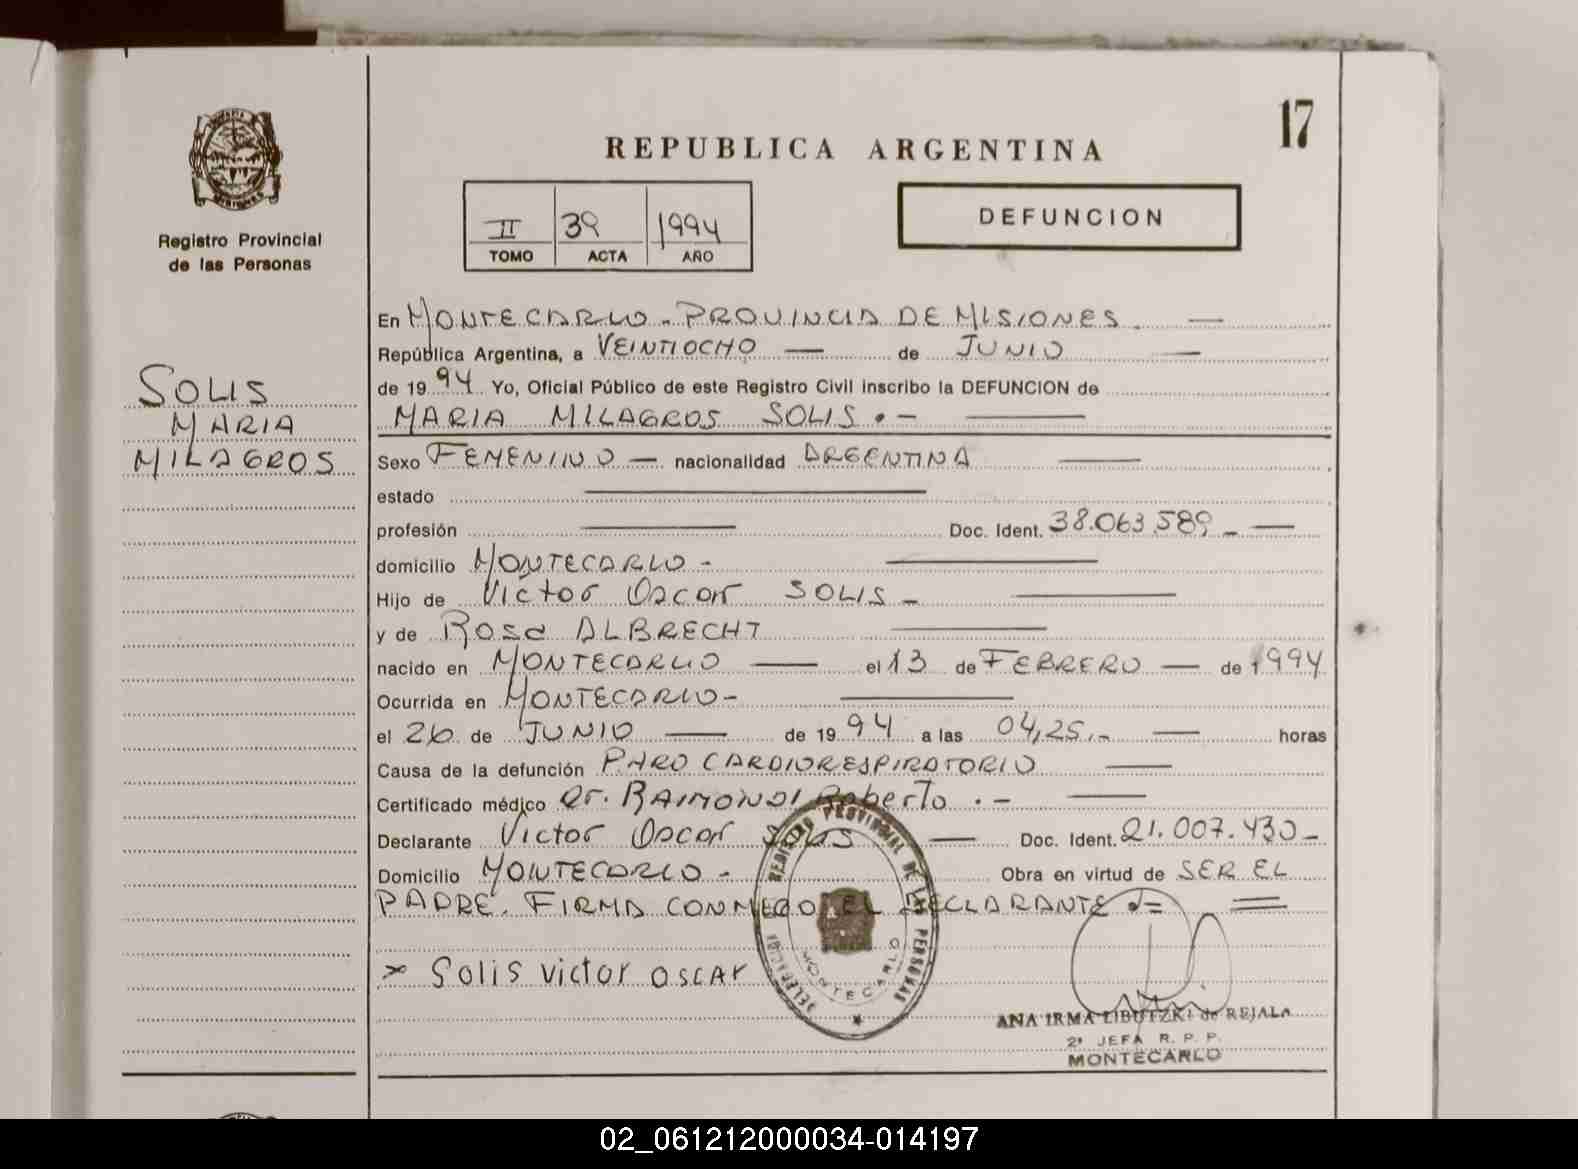 17
REPUBLICA ARGENTINA
II 39 1994
TOMO ACTA AÑO
DEFUNCION
Registro Provincial
de las Personas
SOLIS
MARIA
MILAGROS
En MONTECARLO - PROVINCIA DE MISIONES.
República Argentina, a VEINTIOCHO de JUNIO
de 19 94 Yo, Oficial Público de este Registro Civil inscribo la DEFUNCION de
MARIA MILAGROS SOLIS . -
Sexo FEMENINO - nacionalidad ARGENTINA
estado
profesión Doc. Ident. 38.063.589 -
domicilio MONTECARLO -
Hijo de Victor Oscar SOLIS -
y de Rosa ALBRECHT
nacido en MONTECARLO el 13 de FEBRERO de 1994
Ocurrida en MONTECARLO -
el 26 de JUNIO de 19 94 a las 04,25.- horas
Causa de la defunción PARO CARDIORESPIRATORIO
Certificado médico Dr. RAIMONDI Roberto . -
Declarante Victor Oscar SOLIS Doc. Ident. 21.007.430 -
Domicilio MONTECARLO - Obra en virtud de SER EL
PADRE. FIRMA CONMIGO EL DECLARANTE
x Solis victor oscar
DELEGACION REGISTRO PROVINCIAL DE LAS PERSONAS
MONTECARLO
ANA IRMA LIBUTZKI de REJALA
2ª JEFA R. P. P.
MONTECARLO
02_061212000034-014197